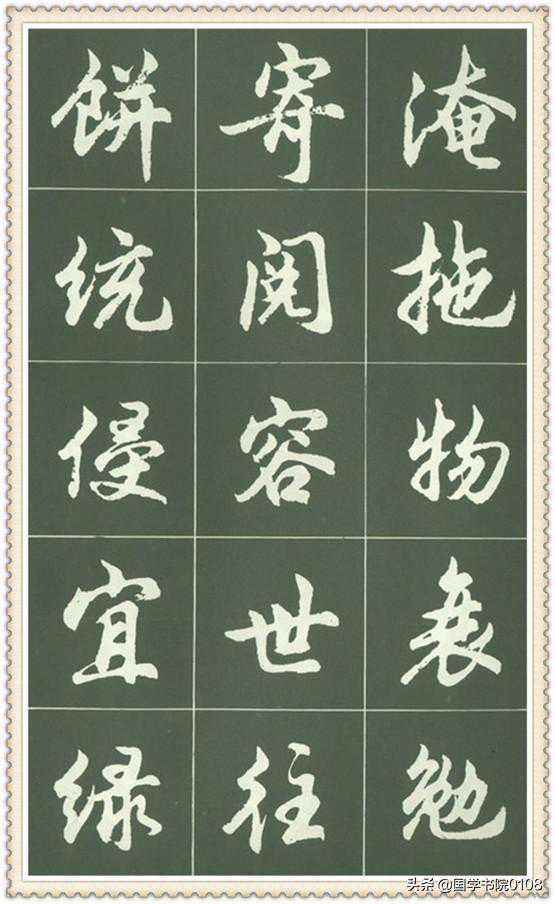 淹拖物衰勉
寄阅容世往
餅统侵宜绿
头条 @国学书院0108